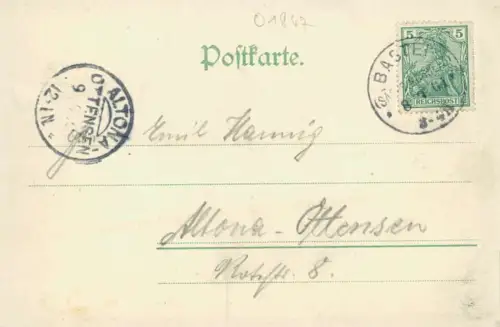 01847
Postkarte.
5 5
REICHSPOST
BASTEI
ALTONA
OTTENSEN
9
12-1N
Emil Hannig
Altona-Ottensen
8.